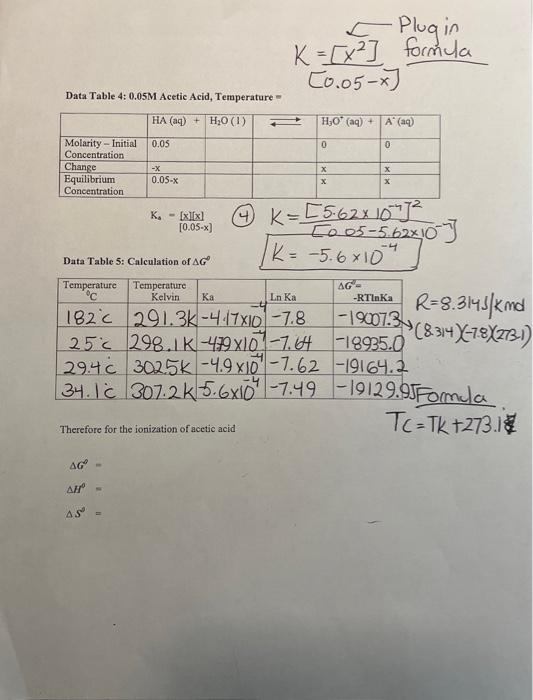 Plug in
K = [x²] formula
[0.05-x]
Data Table 4: 0.05M Acetic Acid, Temperature =
HA (aq) + H₂O (l) ⇌ H₃O⁺ (aq) + A⁻ (aq)
Molarity – Initial Concentration 0.05 0 0
Change -x x x
Equilibrium Concentration 0.05-x x x
Kₐ = [x][x]
[0.05-x]
④ K = [5.62 x 10⁻⁴]²
[0.05-5.62x10⁻⁴]
K = -5.6 x 10⁻⁴
Data Table 5: Calculation of ΔG⁰
Temperature ⁰C Temperature Kelvin Ka Ln Ka ΔG⁰= -RTlnKa
R=8.314J/kmol
18.2°c 291.3K -4.17x10⁻⁴ -7.8 -19007.3
(8.314)(-7.8)(273.1)
25°c 298.1K -4.79x10⁻⁴ -7.64 -18935.0
29.4°c 302.5K -4.9x10⁻⁴ -7.62 -19164.2
34.1°c 307.2K -5.6x10⁻⁴ -7.49 -19129.95
Formula
Tc = TK + 273.1
Therefore for the ionization of acetic acid
ΔG⁰ =
ΔH⁰ =
ΔS⁰ =